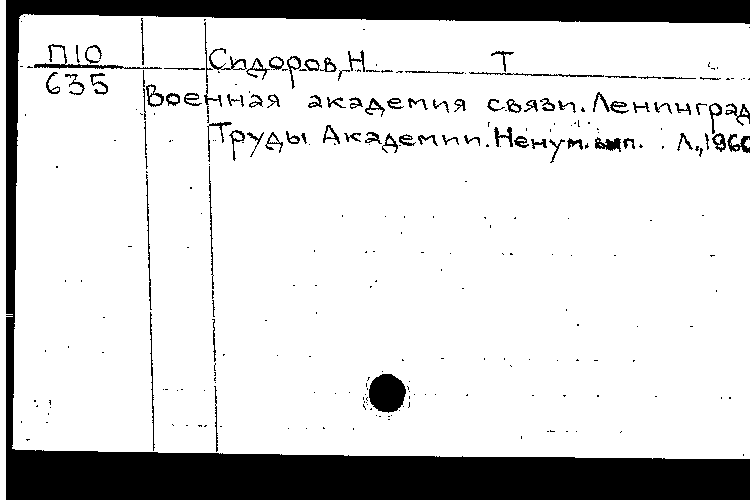 П10 Сидоров, Н Т
635 Военная академия связи. Ленинград
Труды Академии. Ненум. вып. Л., 1960